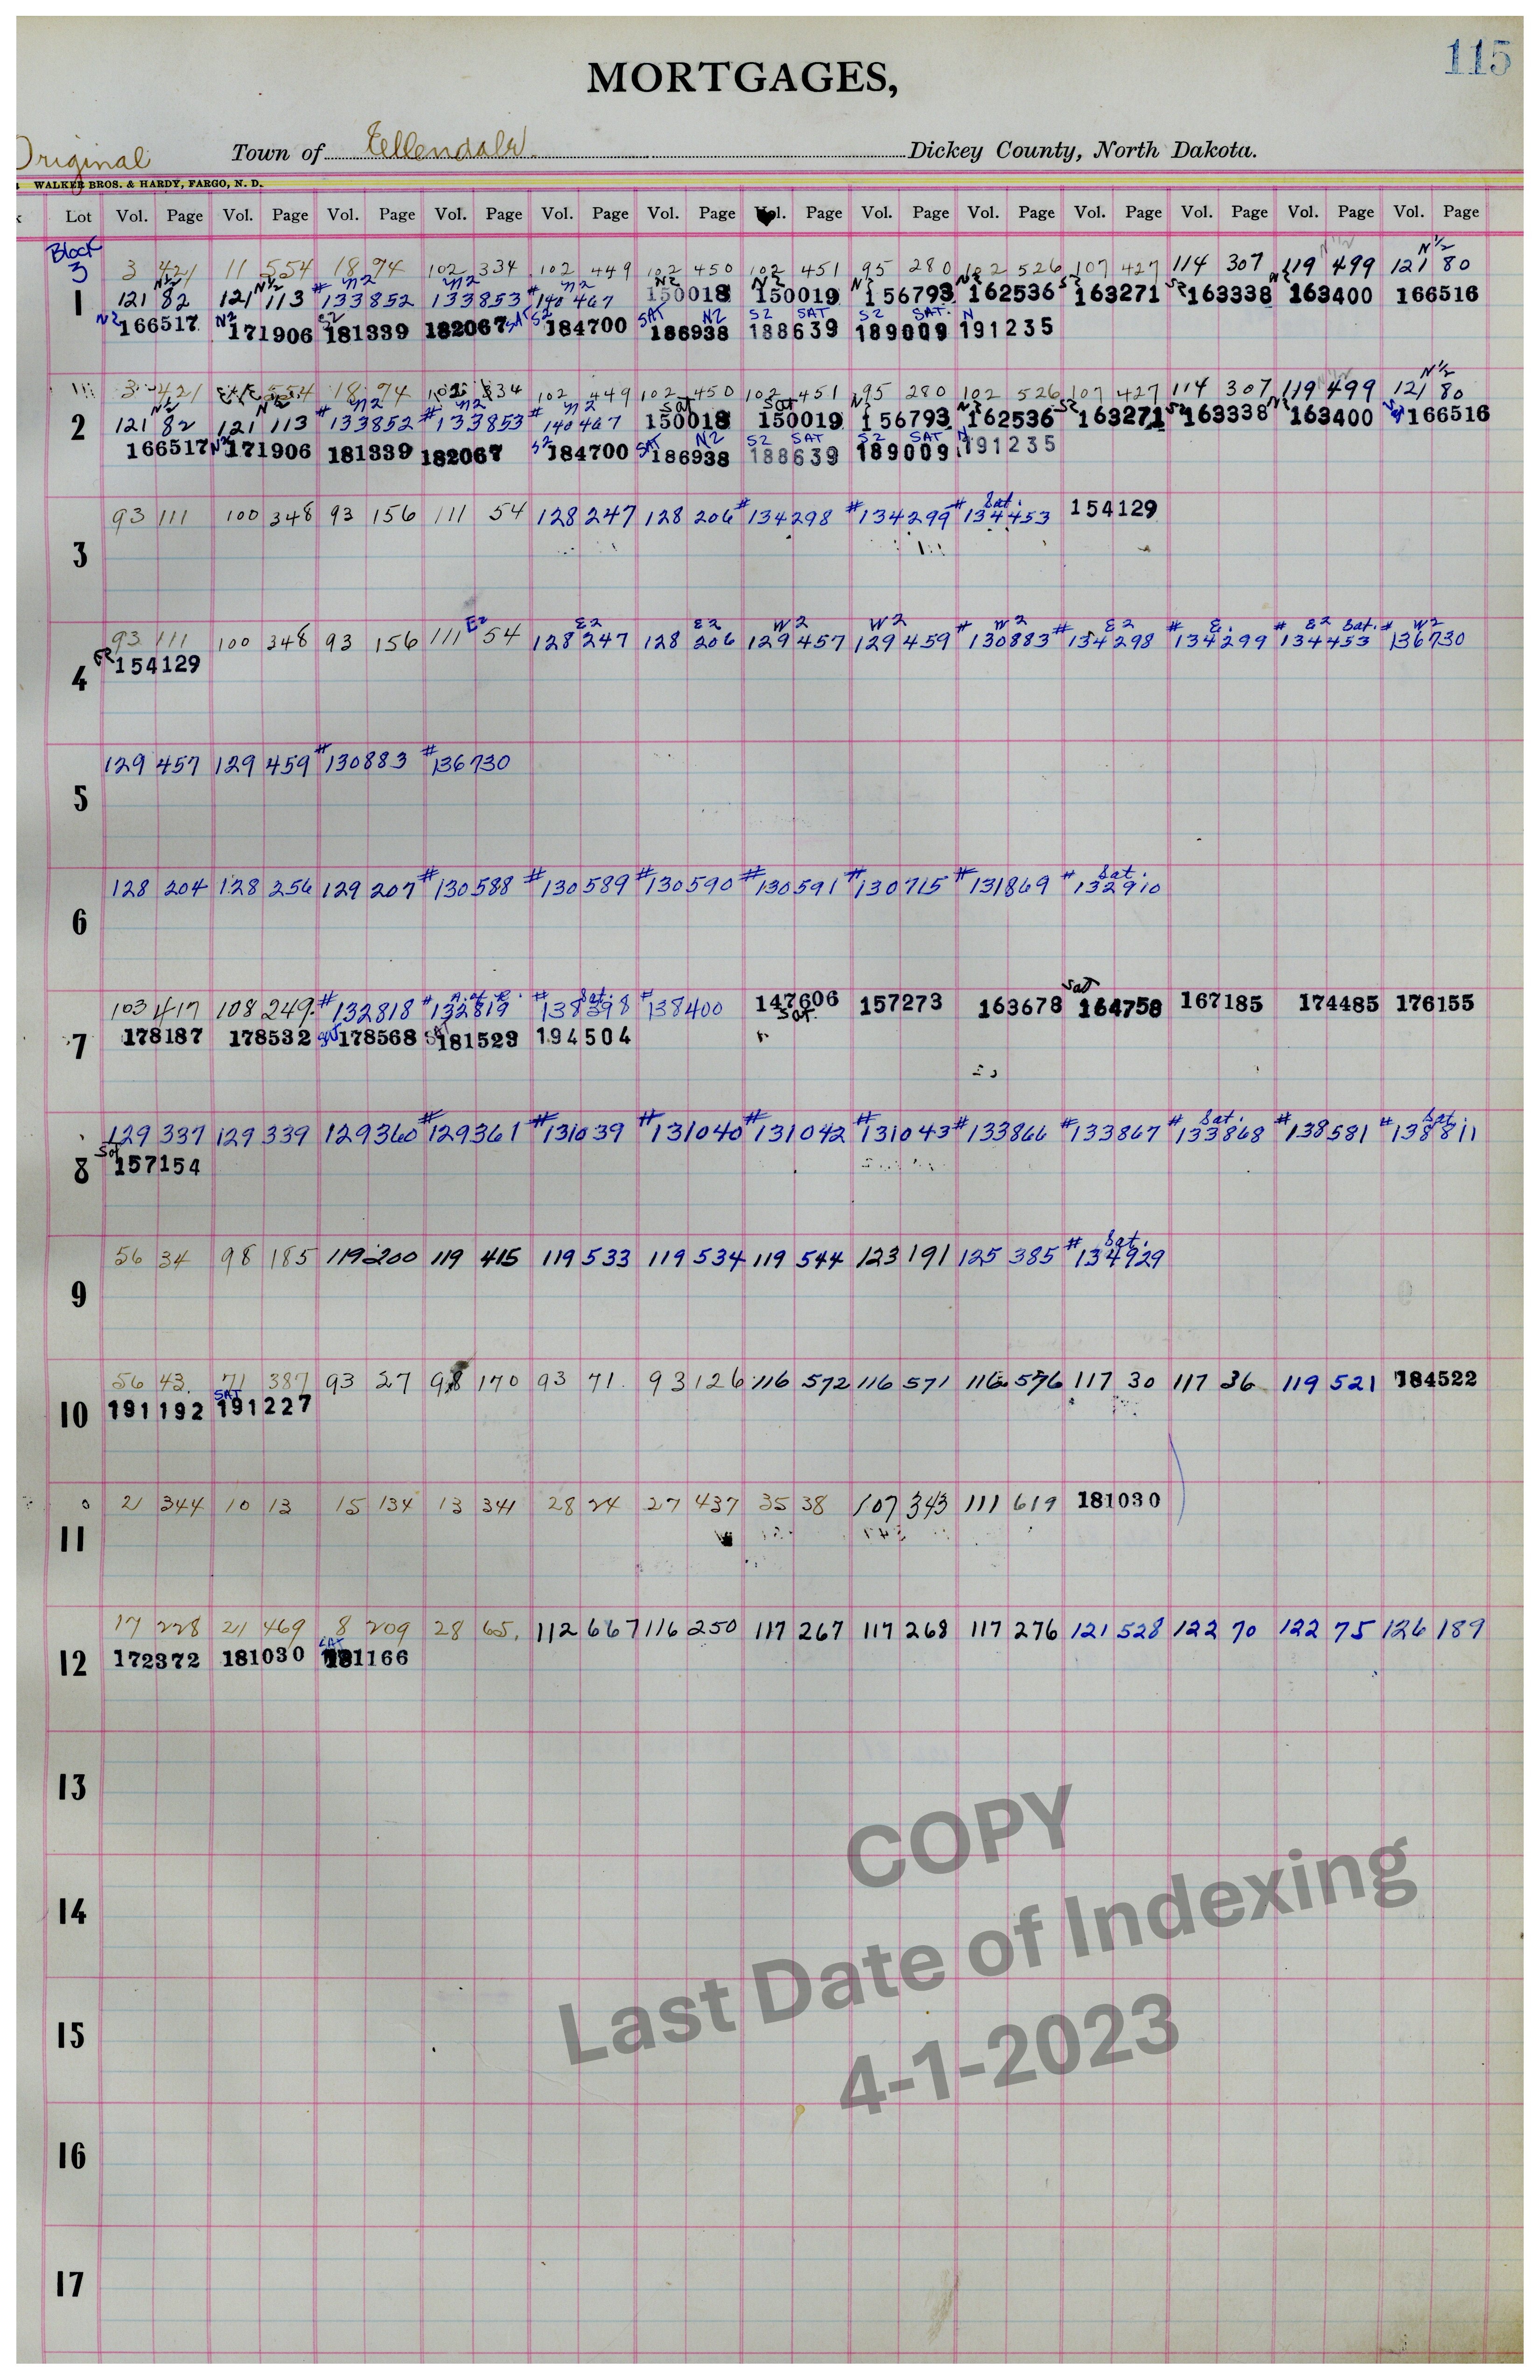 115
MORTGAGES,
Original Town of Ellendale Dickey County, North Dakota.
WALKER BROS. & HARDY, FARGO, N. D.
Lot Vol. Page Vol. Page Vol. Page Vol. Page Vol. Page Vol. Page Vol. Page Vol. Page Vol. Page Vol. Page Vol. Page Vol. Page Vol. Page
Block
3
N 1/2 N 1/2
3 421 11 554 18 74 102 334 102 449 102 450 102 451 95 280 102 526 107 427 114 307 119 499 121 80
N 1/2 N 1/2 N2 N2 N2 N2 N2 N2 N2 S2 S2 N2
1 121 82 121 113 # 133852 133853 # 140467 150018 150019 156793 162536 163271 163338 163400 166516
N2 N2 S2 SAT S2 SAT N2 S2 SAT S2 SAT. N
166517 171906 181339 182067 184700 186938 188639 189009 191235
N 1/2 N 1/2
3 421 554 18 74 102 334 102 449 102 450 102 451 95 280 102 526 107 427 114 307 119 499 121 80
N 1/2 N 1/2 N2 N2 N2 Sat Sat N2 N2 S2 S2 N2
2 121 82 121 113 # 133852 # 133853 # 140467 150018 150019 156793 162536 163271 163338 163400 166516
N2 S2 SAT N2 S2 SAT S2 SAT N
166517 171906 181339 182067 184700 186938 188639 189009 191235
Sat.
93 111 100 348 93 156 111 54 128 247 128 206 # 134298 # 134299 # 134453 154129
3
E2 E2 E2 W2 W2 W2 E2 E. E2 Sat. W2
93 111 100 348 93 156 111 54 128 247 128 206 129 457 129 459 # 130883 # 134298 # 134299 # 134453 # 136730
4 154129
129 457 129 459 # 130883 # 136730
5
Sat.
128 204 128 256 129 207 # 130588 # 130589 # 130590 # 130591 # 130715 # 131869 # 132910
6
A. of R. Sat. Sat
103 417 108 249 # 132818 # 132819 # 138398 # 138400 147606 157273 163678 164758 167185 174485 176155
Sat.
7 178187 178532 SAT 178568 SAT 181529 194504
Sat. Sat.
129 337 129 339 129 360 # 129361 # 131039 # 131040 # 131042 # 131043 # 133866 # 133867 # 133868 # 138581 # 138811
Sat
8 157154
Sat.
56 34 98 185 119 200 119 415 119 533 119 534 119 544 123 191 125 385 # 134929
9
56 43. 71 387 93 27 98 170 93 71. 93 126 116 572 116 571 116 576 117 30 117 36 119 521 184522
SAT
10 191192 191227
21 344 10 13 15 134 13 341 28 24 27 437 35 38 107 343 111 619 181030
11
17 228 21 469 8 209 28 65. 112 667 116 250 117 267 117 268 117 276 121 528 122 70 122 75 126 189
SAT
12 172372 181030 181166
13
14
15
16
17
COPY
Last Date of Indexing
4-1-2023